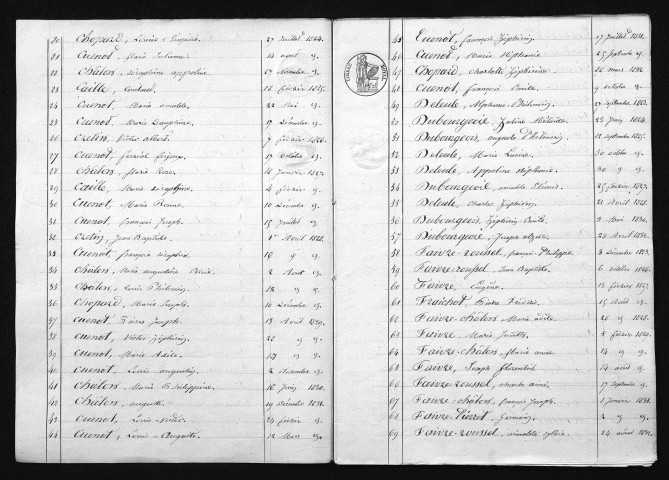 20 Chopard, Louise 27 Juillet 1824.
21 Cuenot, Marie Julienne. 14 août d.
22 Châlon, Séraphine appoline. 17 Novembre d.
23 Caille, Constant. 18 février 1825.
24 Cuenot, Marie aimable. 22 Mai d.
25 Cuenot, Marie Dauphine. 17 Décembre d.
26 Cretin, Victor albert. 7 février 1826.
27 Cuenot, 17 octobre d.
28 Châlon, Marie Rose. 18 Janvier 1827.
29 Caille, Marie Séraphine. 4 février d.
30 Cuenot, Marie 10 Décembre d.
31 Cuenot, françois Joseph. 15 Juillet d.
32 Cretin, Jean Baptiste. 1er Avril 1828.
33 Cuenot, françois Séraphin. 10 d d.
34 Châlon, Marie augustine 2 Août d.
35 Châlon, Louis Philémin. 12 d d.
36 Chopard, Marie Joseph. 10 Décembre d.
37 Cuenot, Pierre Joseph. 13 Avril 1829.
38 Cuenot, Victor Zéphirin. 22 d d.
39 Cuenot, Marie Adèle. 27 d d.
40 Cuenot, Louis augustin. 2 Novembre d.
41 Châlon, Marie Philippine. 16 Juin 1830.
42 Châlon, auguste. 19 Décembre 1831.
43 Cuenot, Louis 24 février d.
44 Cuenot, Louis Auguste. 12 Mars d.
45 Cuenot, françois Zéphirin. 17 Juillet 1831.
46 Cuenot, Marie Stéphanie. 25 Septembre d.
47 Chopard, Charlotte Zéphirine. 20 mars 1832.
48 Cuenot, françois Emile. 9 octobre d.
49 Deleule, Alphonse Philémin. 27 Septembre 1823.
50 Dubourgeois, Justine Mélanie. 23 Juin 1824.
51 Dubourgeois, auguste Philémin. 12 Septembre 1825.
52 Deleule, Marie Louise. 30 octobre d.
53 Deleule, Appoline Stéphanie. 30 d d.
54 Dubourgeois, aimable 25 Janvier 1827.
55 Deleule, Charles Zéphirin. 21 Avril 1828.
56 Dubourgeois, Zéphirin Emile. 9 Mai 1830.
57 Dubourgeois, Joseph 22 Avril 1832.
58 Faivre-roussel, françois Philippe. 3 Décembre 1823.
59 Faivre-roussel, Jean Baptiste. 6 octobre 1826.
60 Faivre, Eugène. 13 février 1827.
61 Fraichot, Pierre Frédéric. 15 Août d.
62 Faivre-châlon, Marie adèle. 20 d 1828.
63 Faivre, Marie 5 février 1830.
64 Faivre-châlon, Marie anne. 14 d d.
65 Faivre, Joseph florentin. 14 d d.
66 Faivre-roussel, charles aimé. 17 Septembre d.
67 Faivre-châlon, françois Joseph. 1 Janvier 1831.
68 Faivre-Pierret, Germain. 2 d d.
69 Faivre-roussel, aimable Sylvie. 24 août 1832.
TIMBRE ROYAL